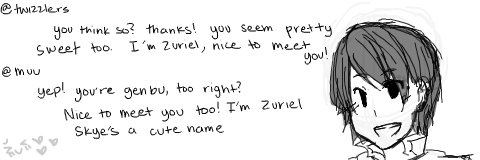 @twizzlers
you think so? thanks! you seem pretty
sweet too. I'm Zuriel, nice to meet
you!
@muu
yep! you're genbu, too right?
Nice to meet you too! I'm Zuriel
Skye's a cute name